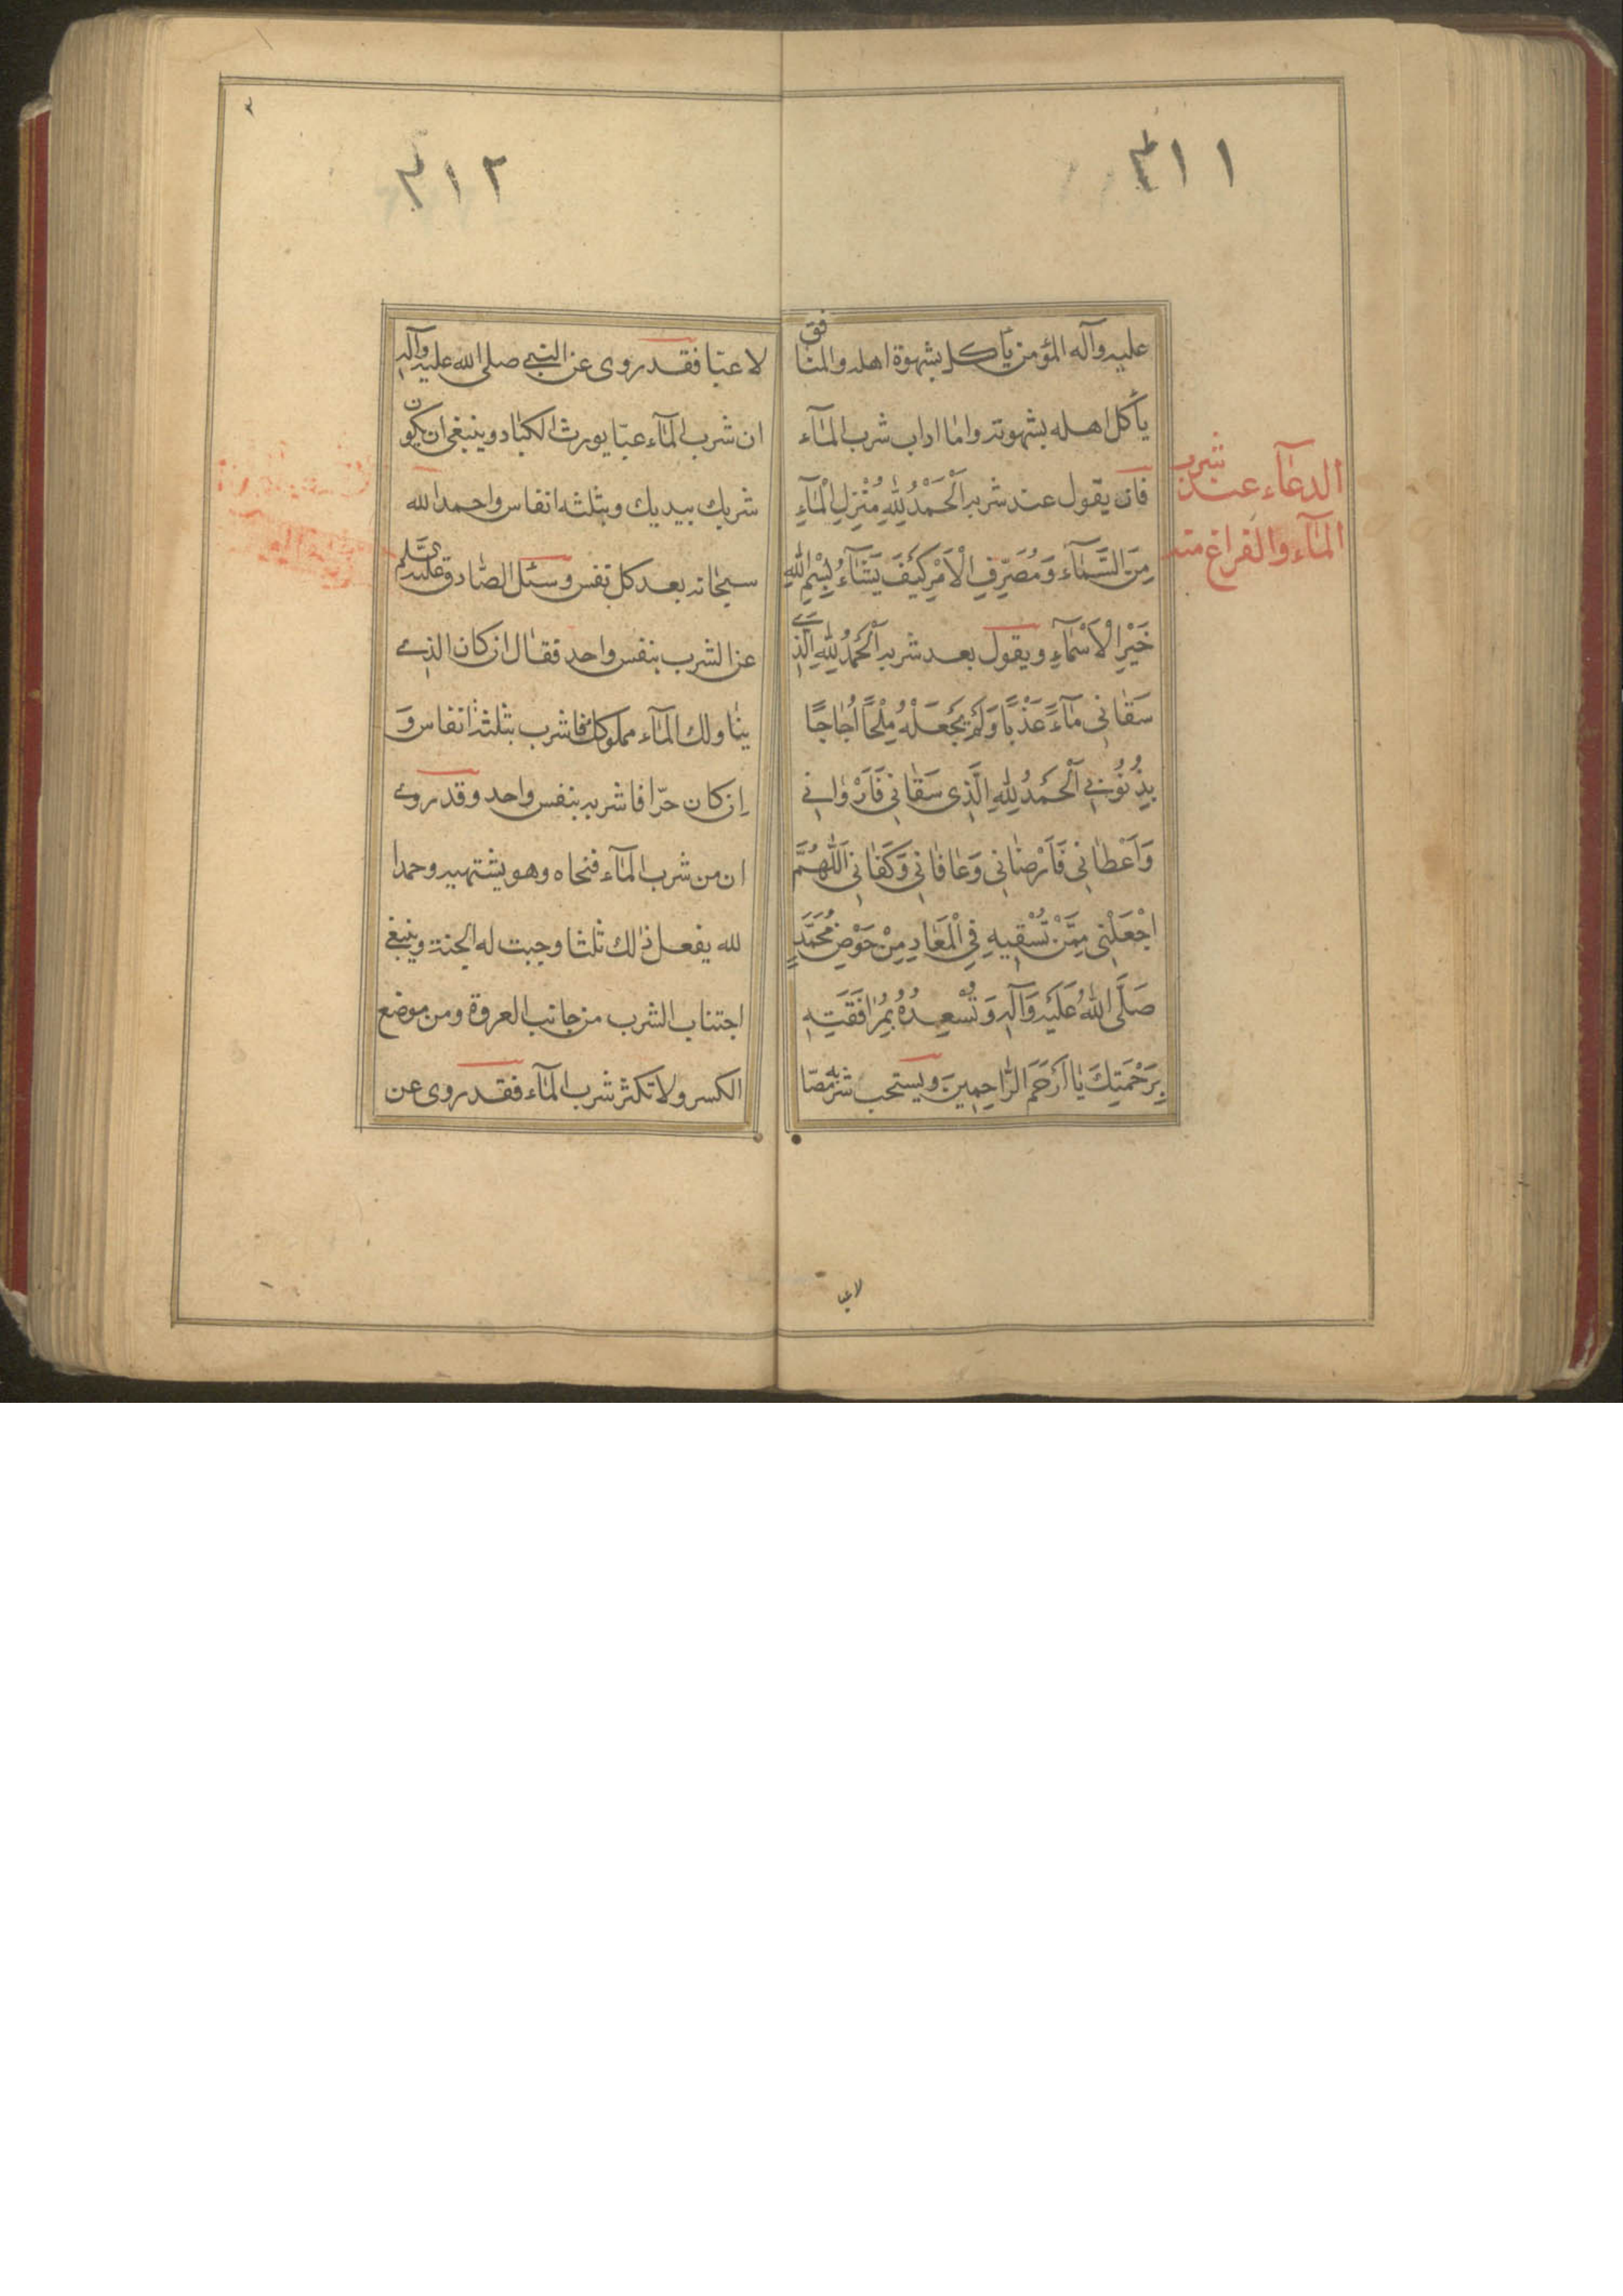 ٣١١
عليه وآله المؤمن يأكل بشهوة اهله والمنافق
يأكل اهله بشهوته واما اداب شرب المآء
فان يقول عند شربه اَلْحَمْدُ لِلّٰهِ مُنْزِلِ الْمٰآءِ
مِنَ السَّمٰآءِ وَمُصَرِّفِ الْاَمْرِ كَيْفَ يَشٰآءُ بِسْمِ اللّٰهِ
خَيْرِ الْاَسْمٰآءِ ويقول بعد شربه اَلْحَمْدُ لِلّٰهِ الَّذِي
سَقٰانِي مٰآءً عَذْبًا وَلَمْ يَجْعَلْهُ مِلْحًا اُجٰاجًا
بِذُنُوبِي اَلْحَمْدُ لِلّٰهِ الَّذِي سَقٰانِي فَاَرْوٰانِي
وَاَعْطٰانِي فَاَرْضٰانِي وَعٰافٰانِي وَكَفٰانِي اَللّٰهُمَّ
اجْعَلْنِي مِمَّنْ تُسْقِيهِ فِي الْمَعٰادِ مِنْ حَوْضِ مُحَمَّدٍ
صَلَّى اللّٰهُ عَلَيْهِ وَآلِهِ وَتُسْعِدُهُ بِمُرٰافَقَتِهِ
بِرَحْمَتِكَ يٰا اَرْحَمَ الرّٰاحِمِينَ ويستحب شربه مصّا
الدعآء عند شرب
المآء والفراغ منه
لا عبا
٣١٢
لا عبّا فقد روى عن النبي صلى الله عليه وآله
ان شرب المآء عبّا يورث الكباد وينبغي ان يكون
شربك بيديك وبثلثه انفاس واحمد الله
سبحانه بعد كل نفس وسئل الصّادق عليه السّلم
عن الشرب بنفس واحد فقال ان كان الذي
يناولك المآء مملوكك فاشرب بثلثة انفاس وَ
اِن كان حرّا فاشربه بنفس واحد وقد روي
ان من شرب المآء فنحاه وهو يشتهيه وحمدا
لله يفعل ذٰلك ثلثا وجبت له الجنة وينبغي
اجتناب الشرب من جانب العروة ومن موضع
الكسر ولا تكثر شرب المآء فقد روى عن